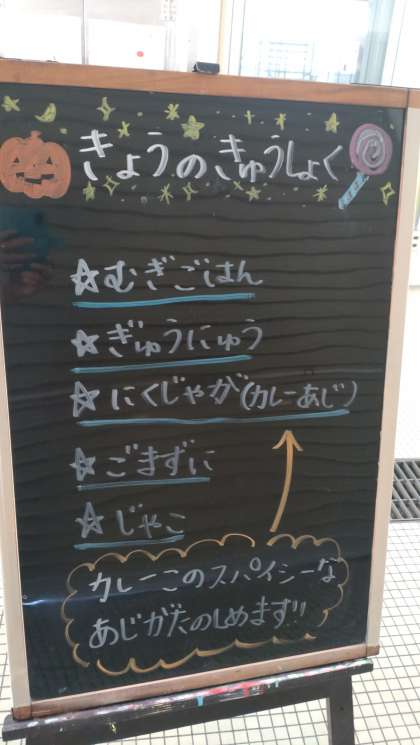 きょうのきゅうしょく
☆むぎごはん
☆ぎゅうにゅう
☆にくじゃが(カレーあじ)
☆ごまずに
☆じゃこ
カレーこのスパイシーな
あじがたのしめます!!